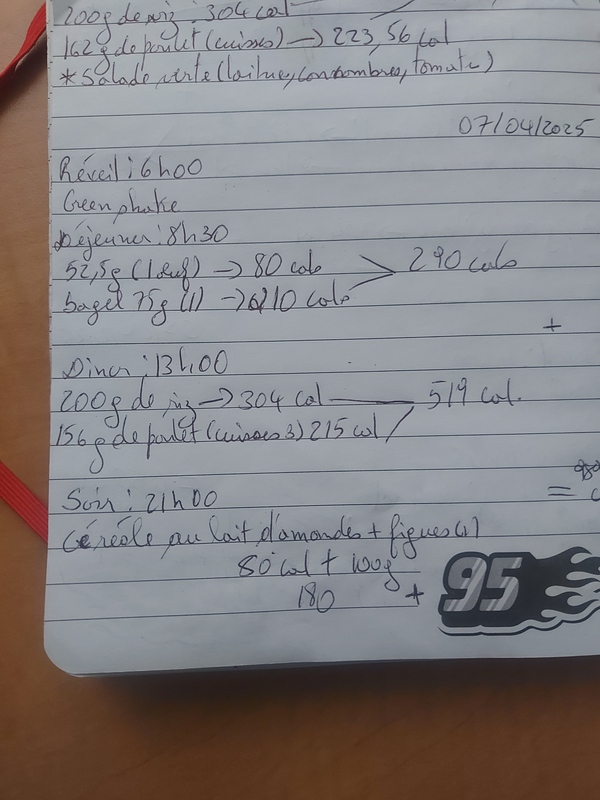 200g de riz : 304 cal
162g de poulet (cuisses) → 223,56 cal
* Salade verte (laitue, concombres, tomate)
07/04/2025
Réveil : 6h00
Green shake
Déjeuner : 8h30
52,5g (1 œuf) → 80 cals
290 cals
bagel 75g (1) → 210 cals
+
Diner : 13h00
200g de riz → 304 cal
519 cal.
156g de poulet (cuisses 3) 215 cal
Soir : 21h00
=
Céréale au lait d'amandes + figues (1)
80 cal + 100g
180 +
95